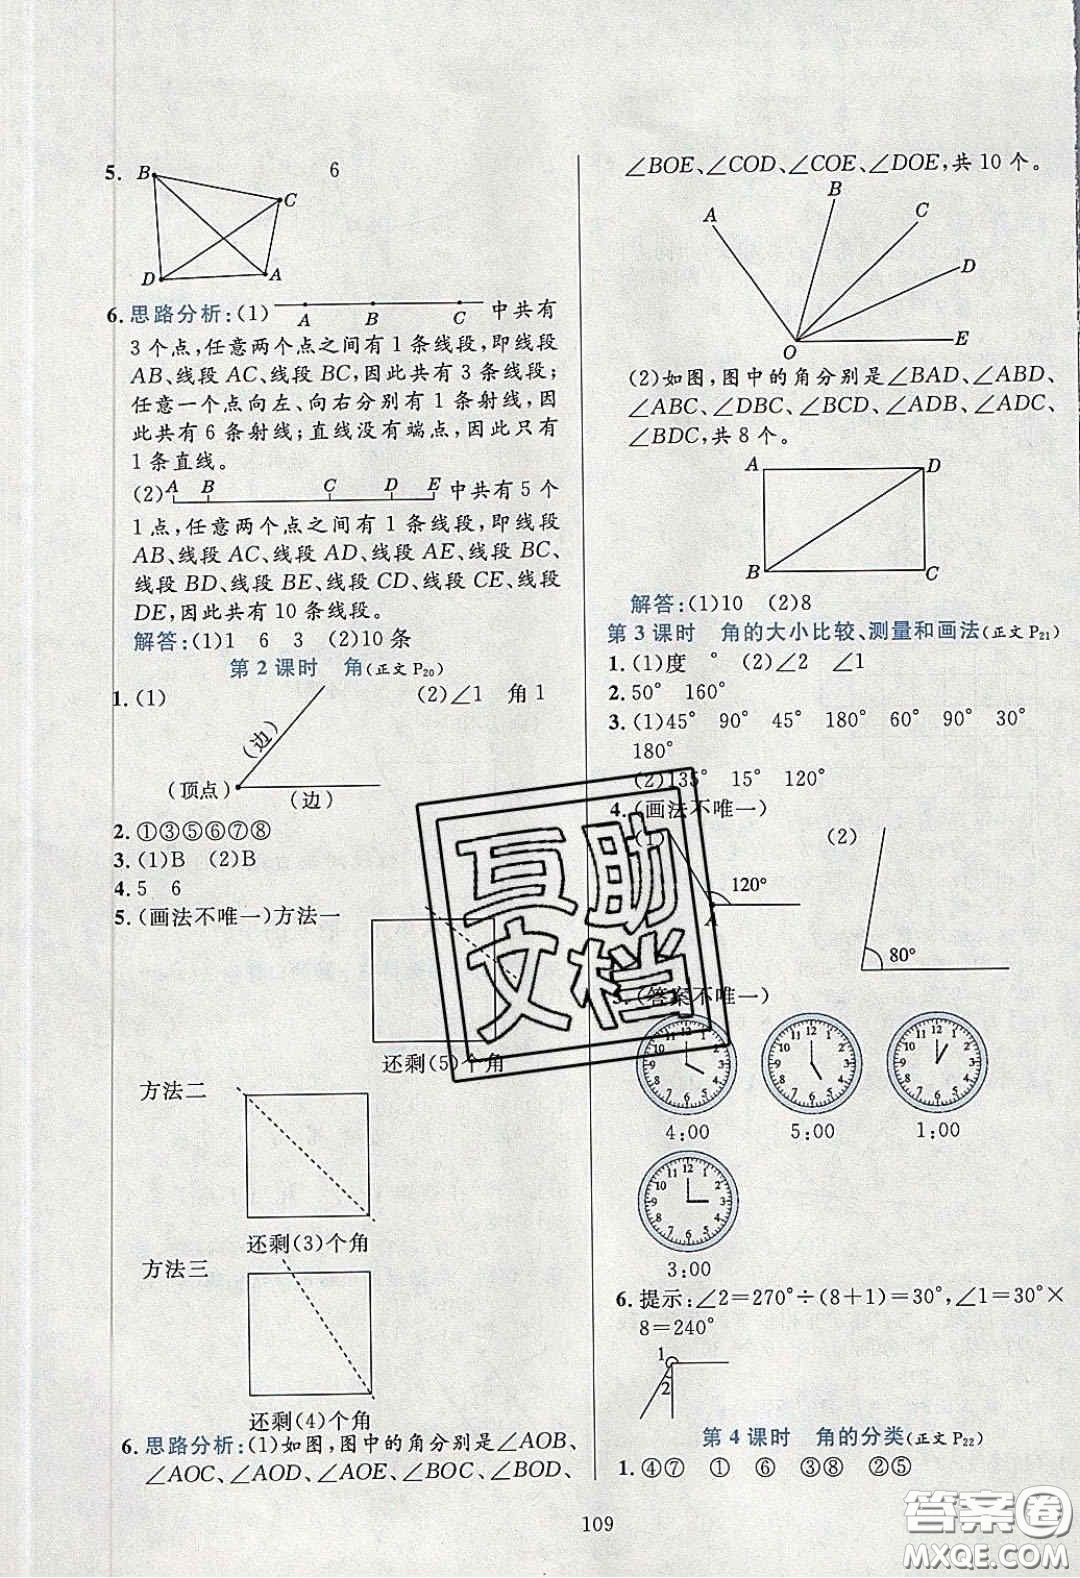 5.
B
6
C
D
A
6. 思路分析:(1)
A B C
中共有
3个点,任意两个点之间有1条线段,即线段
AB、线段AC、线段BC,因此共有3条线段;
任意一个点向左、向右分别有1条射线,因
此共有6条射线;直线没有端点,因此只有
1条直线。
(2)
A B C D E
中共有5个
1点,任意两个点之间有1条线段,即线段
AB、线段AC、线段AD、线段AE、线段BC、
线段BD、线段BE、线段CD、线段CE、线段
DE,因此共有10条线段。
解答:(1)1 6 3 (2)10条
第2课时 角(正文P20)
1. (1)
(2)∠1 角1
(边)
(顶点)
(边)
2. ①③⑤⑥⑦⑧
3. (1)B (2)B
4. 5 6
5. (画法不唯一)方法一
还剩(5)个角
方法二
还剩(3)个角
方法三
还剩(4)个角
6. 思路分析:(1)如图,图中的角分别是∠AOB、
∠AOC、∠AOD、∠AOE、∠BOC、∠BOD、
∠BOE、∠COD、∠COE、∠DOE,共10个。
A
B
C
D
O
E
(2)如图,图中的角分别是∠BAD、∠ABD、
∠ABC、∠DBC、∠BCD、∠ADB、∠ADC、
∠BDC,共8个。
A
D
B
C
解答:(1)10 (2)8
第3课时 角的大小比较、测量和画法(正文P21)
1. (1)度 ° (2)∠2 ∠1
2. 50° 160°
3. (1)45° 90° 45° 180° 60° 90° 30°
180°
(2)135° 15° 120°
4. (画法不唯一)
(2)
120°
A
80°
5. (答案不唯一)
12 1 2 3 4 5 6 7 8 9 10 11
12 1 2 3 4 5 6 7 8 9 10 11
12 1 2 3 4 5 6 7 8 9 10 11
4:00
5:00
1:00
12 1 2 3 4 5 6 7 8 9 10 11
3:00
6. 提示:∠2=270°÷(8+1)=30°,∠1=30°×
8=240°
1
2
第4课时 角的分类(正文P22)
1. ④⑦ ① ⑥ ③⑧ ②⑤
109
互助
文档
答案圈
MXQE.COM